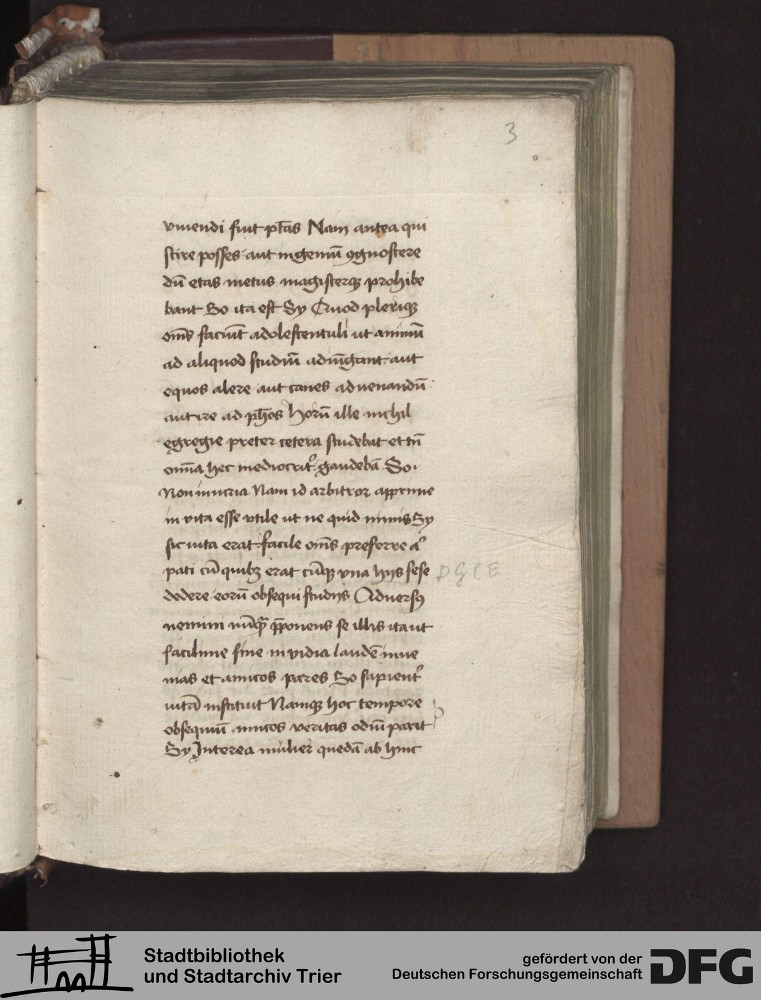 3
viuendi fuit ptãs Nam antea qui
scire posses aut ingeniũ ꝯgnoscere
dũ etas metus magisterqȝ prohibe
bant So ita est Sy Quod pleriqȝ
om̃s faciũt adolescentuli ut animũ
ad aliquod studiũ adiũgant aut
equos alere aut canes ad venandũ
aut ire ad ph̃os Horũ ille nichil
egregie preter cetera studebat et tñ
om̃ia hec mediocrit᷒ gaudebã So
Non iniuria Nam id arbitror apprime
in vita esse vtile ut ne quid nimis Sy
sic uita erat facile om̃s preferre a᷒
pati cũ quibȝ erat cũqȝ vna hijs sese
D G C E
dedere eorũ obsequi studijs Aduersꝰ
nemini nũqꝫ p̃ponens se illis ita ut
facilime sine inuidia laudẽ inue
nias et amicos pares So sapient᷒
uitã instituit Namqȝ hoc tempore
obsequiũ amicos veritas odiũ parit
Sy Interea mulier quedã ab hinc
Stadtbibliothek
und Stadtarchiv Trier
gefördert von der
Deutschen Forschungsgemeinschaft
DFG